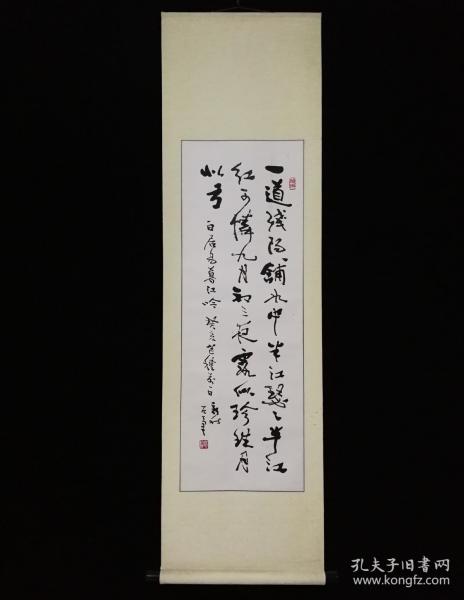 一道殘陽舖水中半江瑟々半江
紅可憐九月初三夜露似珍珠月
似弓
白居易暮江吟 癸亥芒種前日
孔夫子旧书网
www.kongfz.com